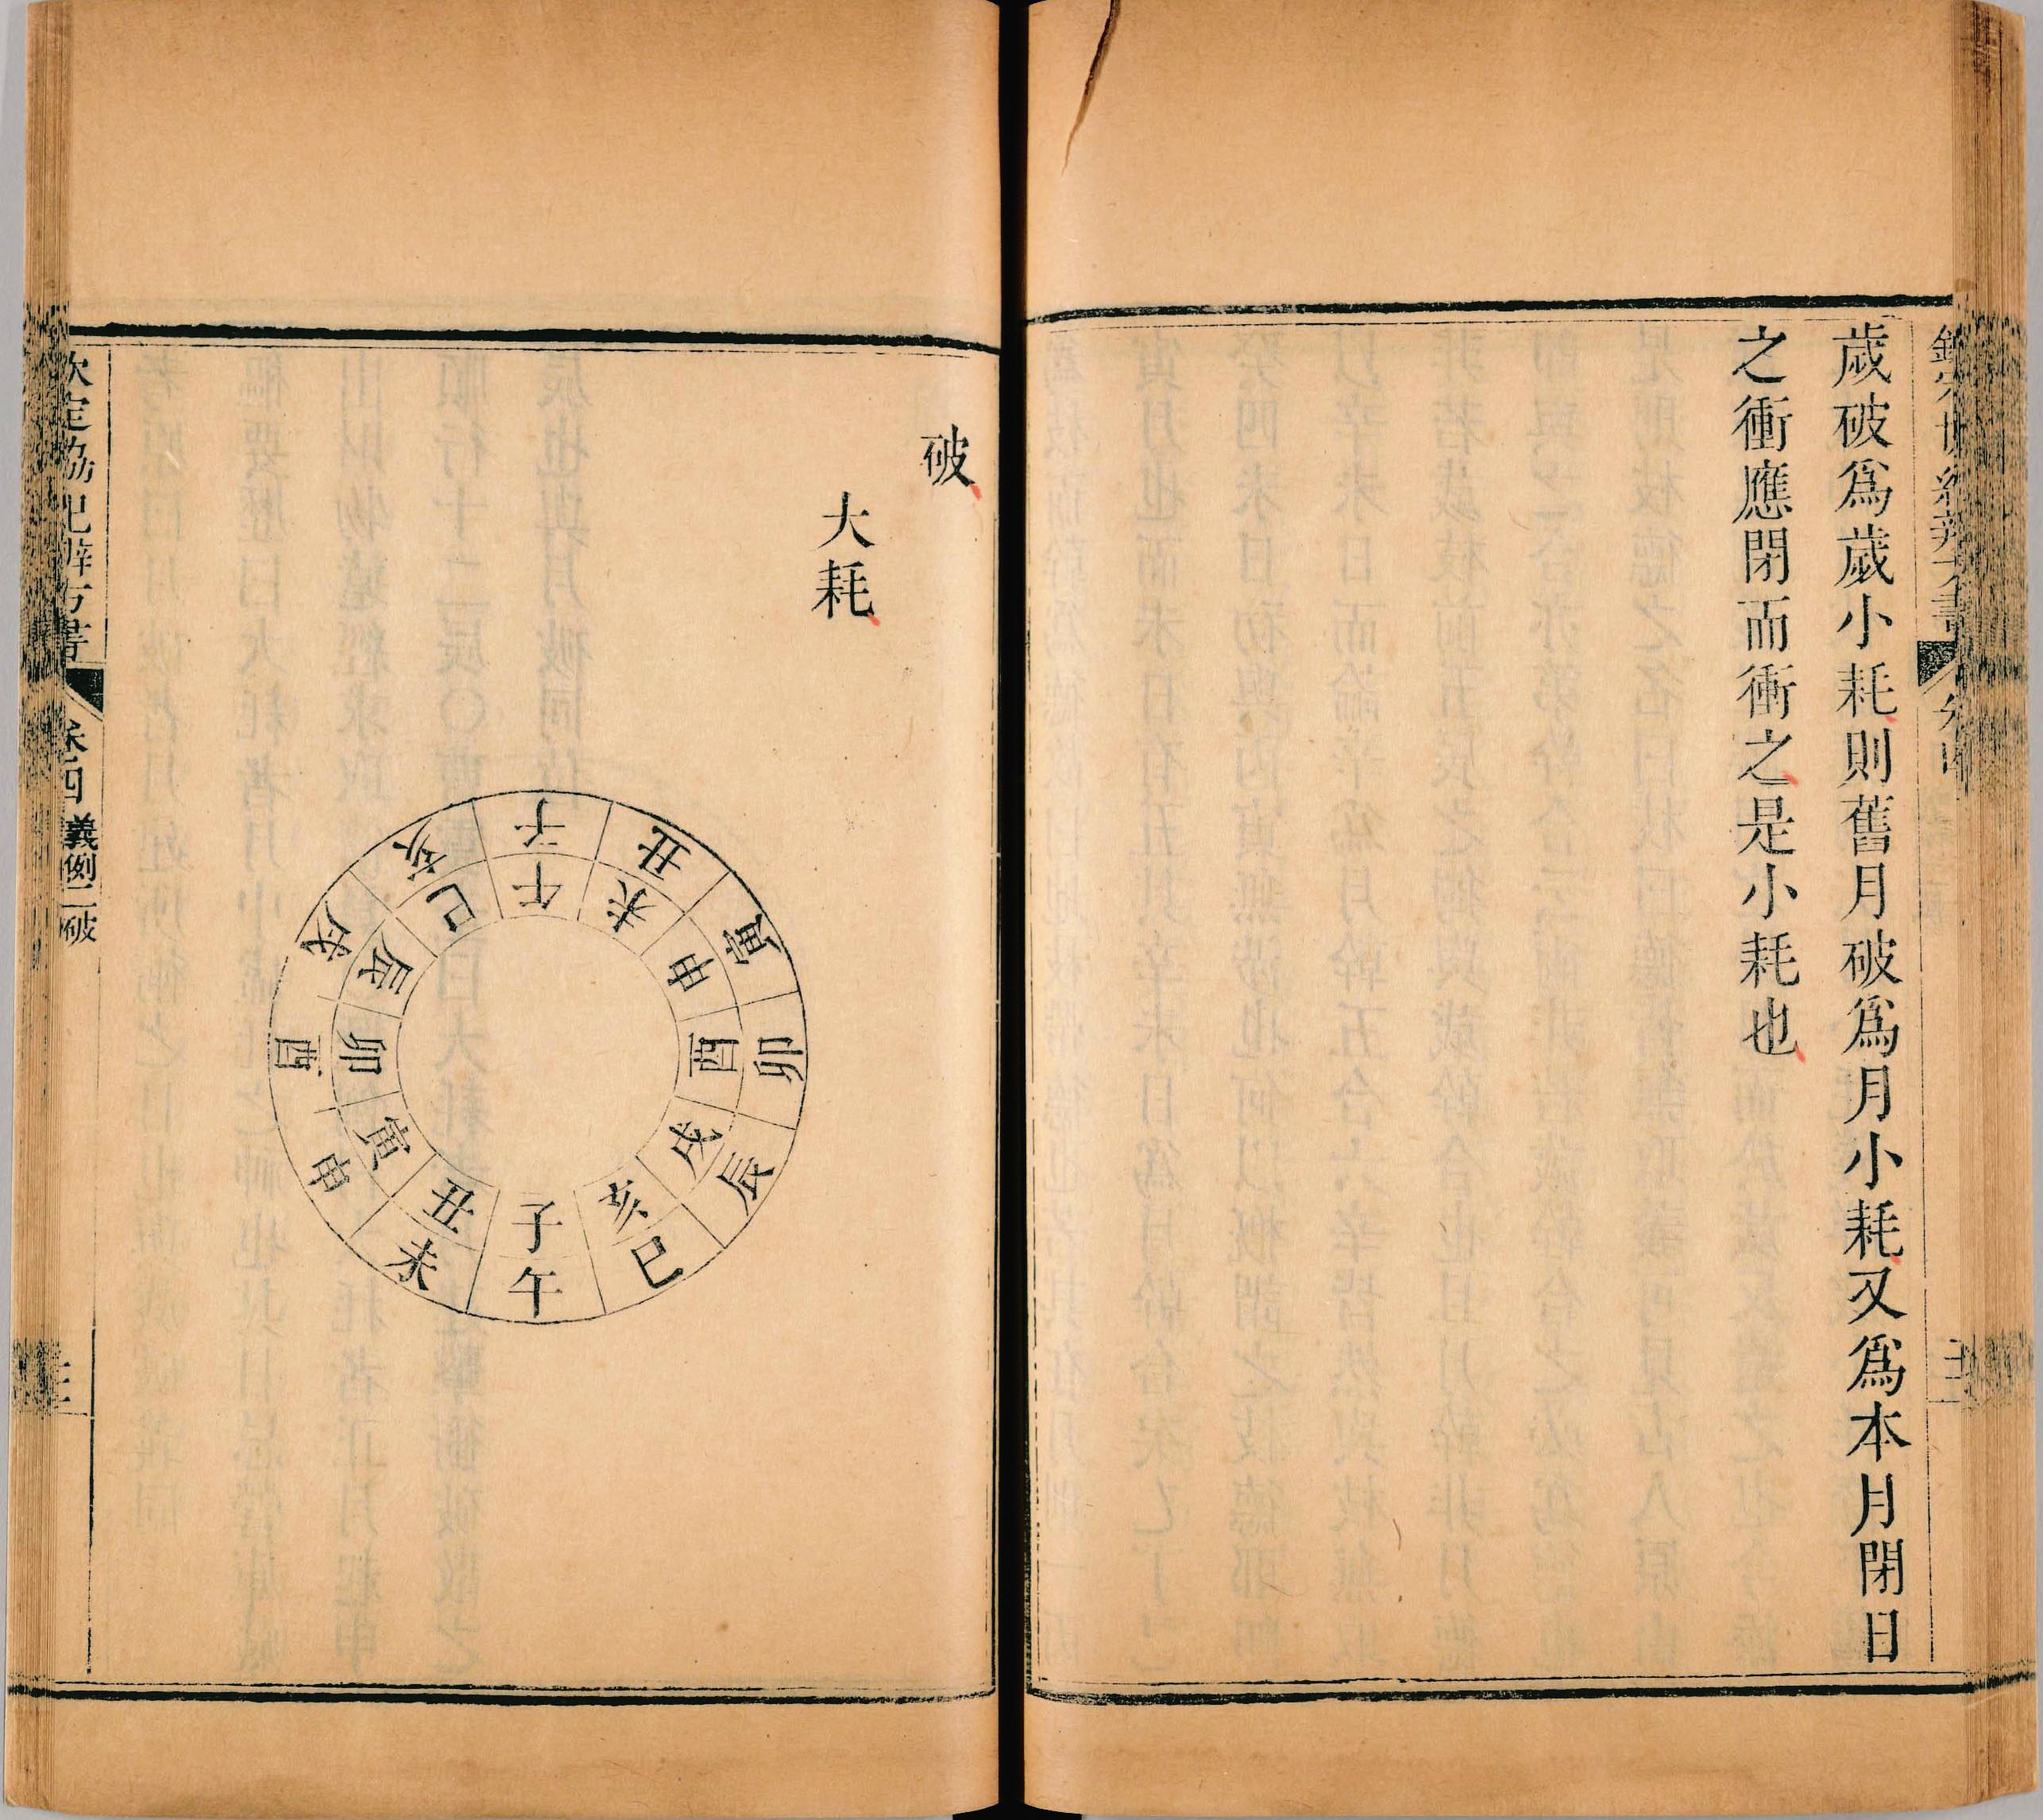 歲破爲歲小耗則舊月破爲月小耗又爲本月閉日
之衝應閉而衝之是小耗也
破
大耗
子丑寅卯辰巳午未申酉戌亥
午未申酉戌亥子丑寅卯辰巳
欽定協紀辨方書
卷四
義例二
破